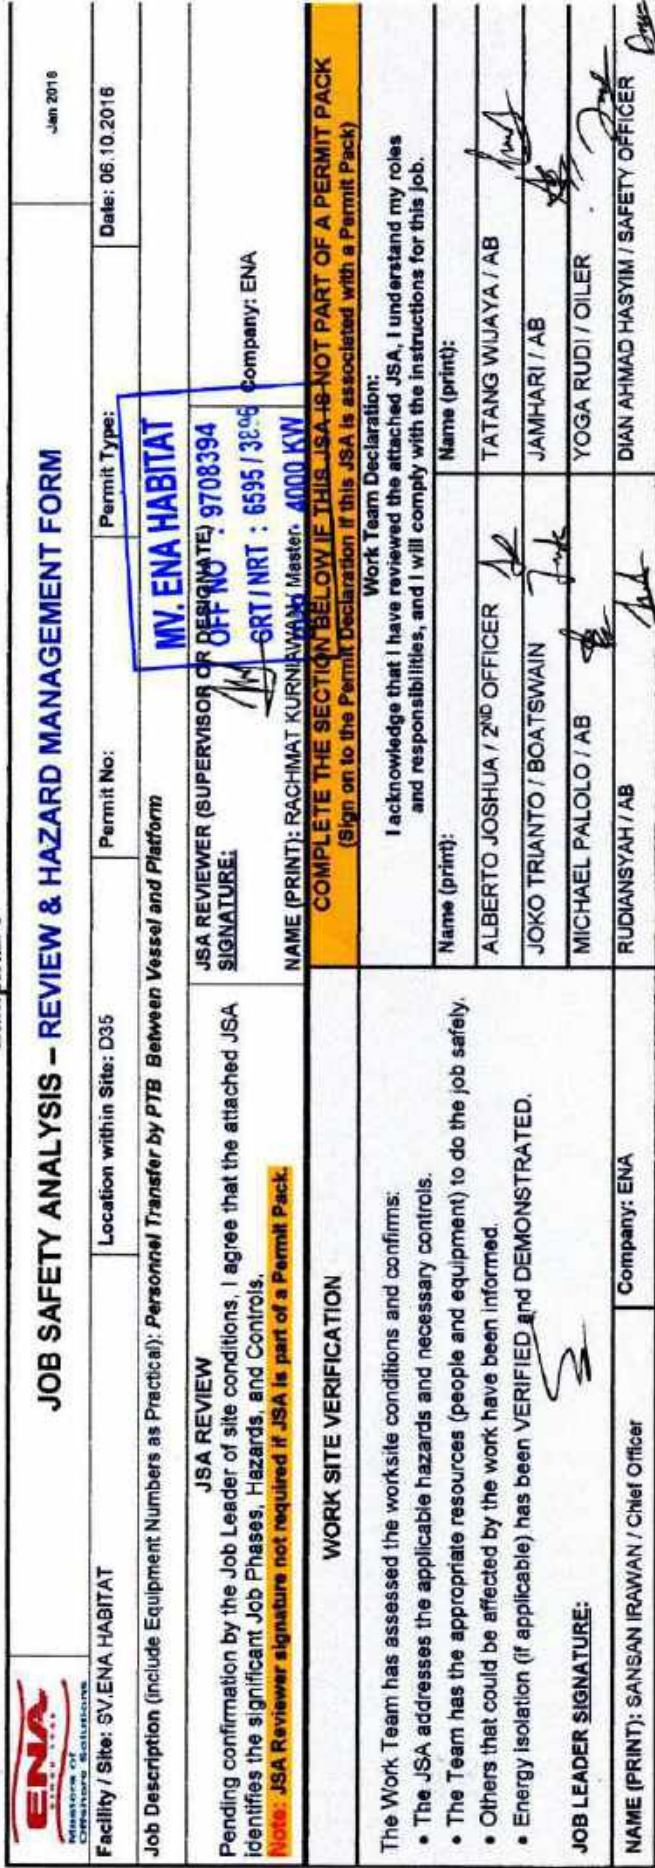 ENA
SINCE 1986
Masters of
Offshore Solutions
JOB SAFETY ANALYSIS – REVIEW & HAZARD MANAGEMENT FORM
Jan 2016
Facility / Site: SV.ENA HABITAT
Location within Site: D35
Permit No:
Permit Type:
Date: 06.10.2016
Job Description (include Equipment Numbers as Practical): Personnel Transfer by PTB Between Vessel and Platform
JSA REVIEW
Pending confirmation by the Job Leader of site conditions, I agree that the attached JSA
identifies the significant Job Phases, Hazards, and Controls.
Note: JSA Reviewer signature not required if JSA is part of a Permit Pack.
JSA REVIEWER (SUPERVISOR OR DESIGNATE)
SIGNATURE:
NAME (PRINT): RACHMAT KURNIAWAN/ Master
Company: ENA
MV. ENA HABITAT
OFF NO : 9708394
GRT / NRT : 6595 /
4000 KW
WORK SITE VERIFICATION
The Work Team has assessed the worksite conditions and confirms:
• The JSA addresses the applicable hazards and necessary controls.
• The Team has the appropriate resources (people and equipment) to do the job safely.
• Others that could be affected by the work have been informed.
• Energy isolation (if applicable) has been VERIFIED and DEMONSTRATED.
JOB LEADER SIGNATURE:
NAME (PRINT): SANSAN IRAWAN / Chief Officer
Company: ENA
COMPLETE THE SECTION BELOW IF THIS JSA IS NOT PART OF A PERMIT PACK
(Sign on to the Permit Declaration if this JSA is associated with a Permit Pack)
Work Team Declaration:
I acknowledge that I have reviewed the attached JSA, I understand my roles
and responsibilities, and I will comply with the instructions for this job.
Name (print):
Name (print):
ALBERTO JOSHUA / 2ND OFFICER
TATANG WIJAYA / AB
JOKO TRIANTO / BOATSWAIN
JAMHARI / AB
MICHAEL PALOLO / AB
YOGA RUDI / OILER
RUDIANSYAH / AB
DIAN AHMAD HASYIM / SAFETY OFFICER